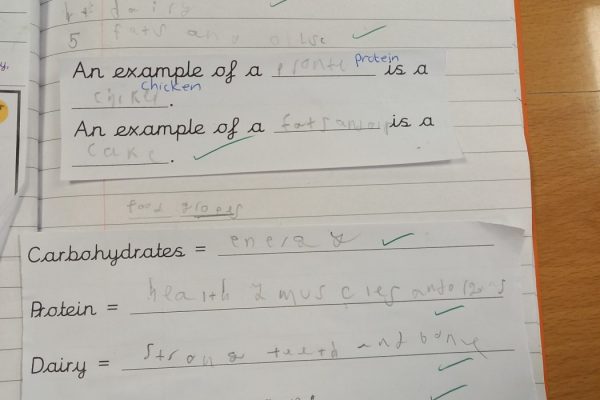 4 dairy
5 fats and
protein
An example of a pronte is a
chicken
chicken.
An example of a fats and is a
cake.
food groups
Carbohydrates = energy
Protein = health 2 muscles and
Dairy = strong teeth and bone